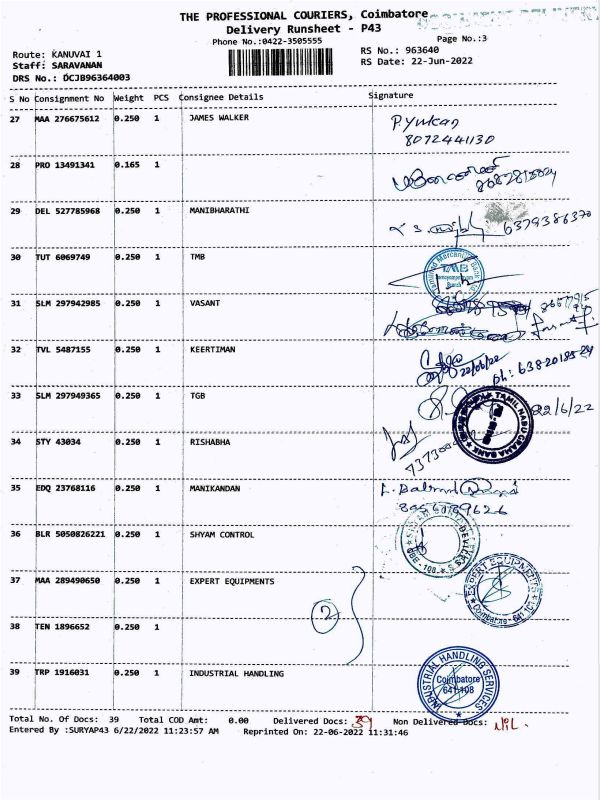 THE PROFESSIONAL COURIERS, Coimbatore
Delivery Runsheet - P43
Phone No.:0422-3505555
Page No.:3
Route: KANUVAI 1
Staff: SARAVANAN
DRS No.: DCJB96364003
RS No.: 963640
RS Date: 22-Jun-2022
S No Consignment No Weight PCS Consignee Details Signature
27 MAA 276675612 0.250 1 JAMES WALKER
8072441130
28 PRO 13491341 0.165 1
29 DEL 527785968 0.250 1 MANIBHARATHI
6379386370
30 TUT 6069749 0.250 1 TMB
TMB
31 SLM 297942985 0.250 1 VASANT
32 TVL 5487155 0.250 1 KEERTIMAN
22/06/22
ph: 6382018524
33 SLM 297949365 0.250 1 TGB
TAMIL NADU GRAMA BANK
22/6/22
34 STY 43034 0.250 1 RISHABHA
35 EDQ 23768116 0.250 1 MANIKANDAN
36 BLR 5050826221 0.250 1 SHYAM CONTROL
37 MAA 289490650 1 EXPERT EQUIPMENTS
EXPERT EQUIPMENTS
Coimbatore - 641
2
38 TEN 1896652 0.250 1
39 TRP 1916031 0.250 1 INDUSTRIAL HANDLING
INDUSTRIAL HANDLING SERVICES
Coimbatore
641 108
Total No. Of Docs: 39 Total COD Amt: 0.00 Delivered Docs: 39 Non Delivered Docs: NIL.
Entered By :SURYAP43 6/22/2022 11:23:57 AM Reprinted On: 22-06-2022 11:31:46